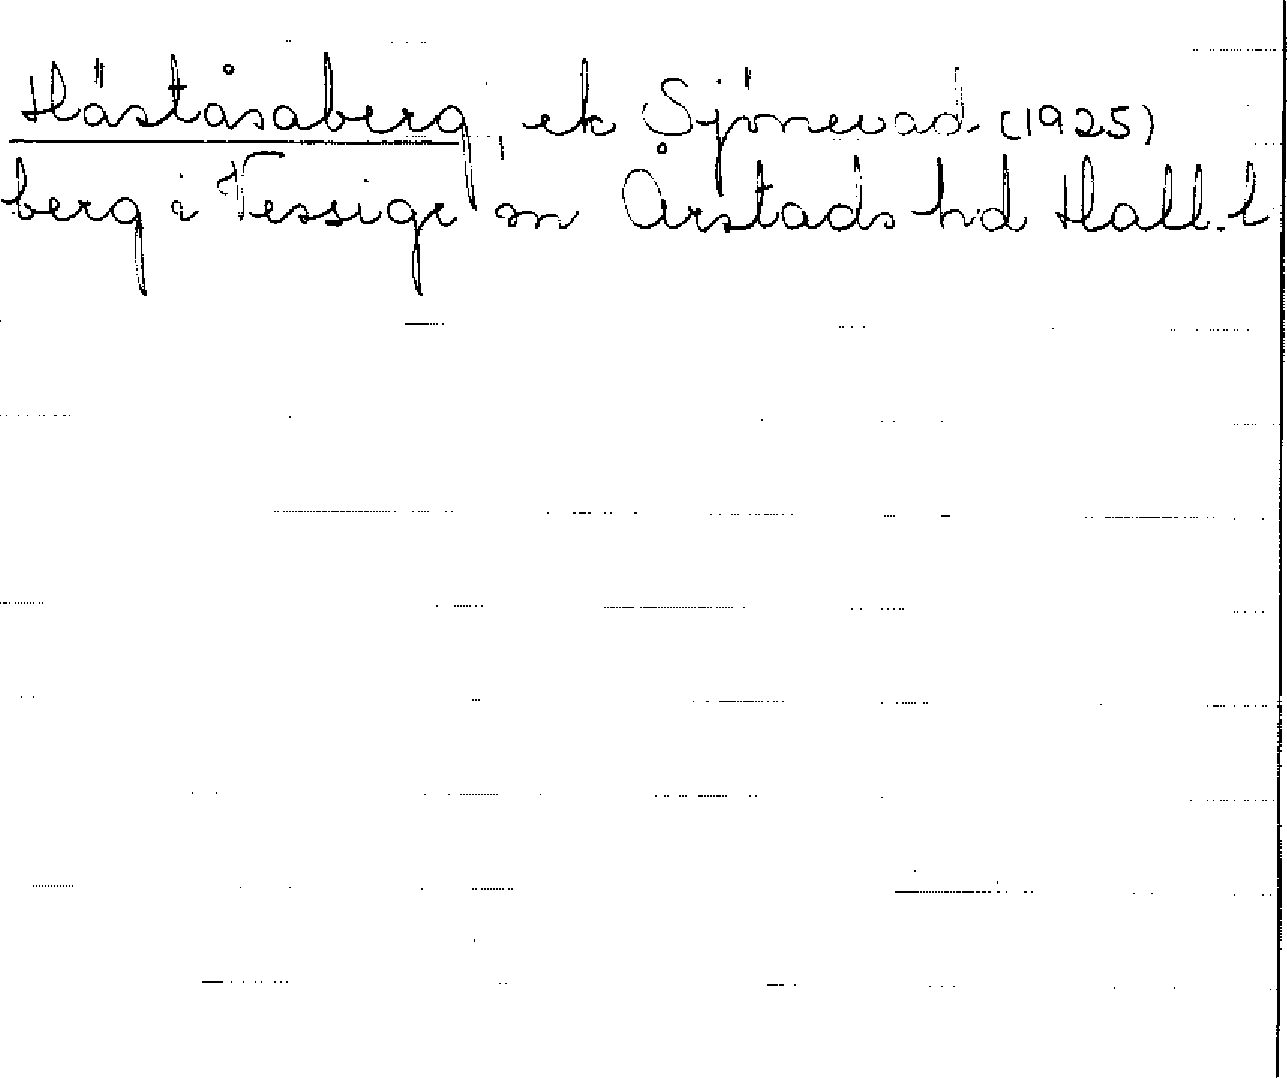 Häståsaberg, ek Sjönevad (1925)
berg i Vessige sn Årstads hd Hall. l